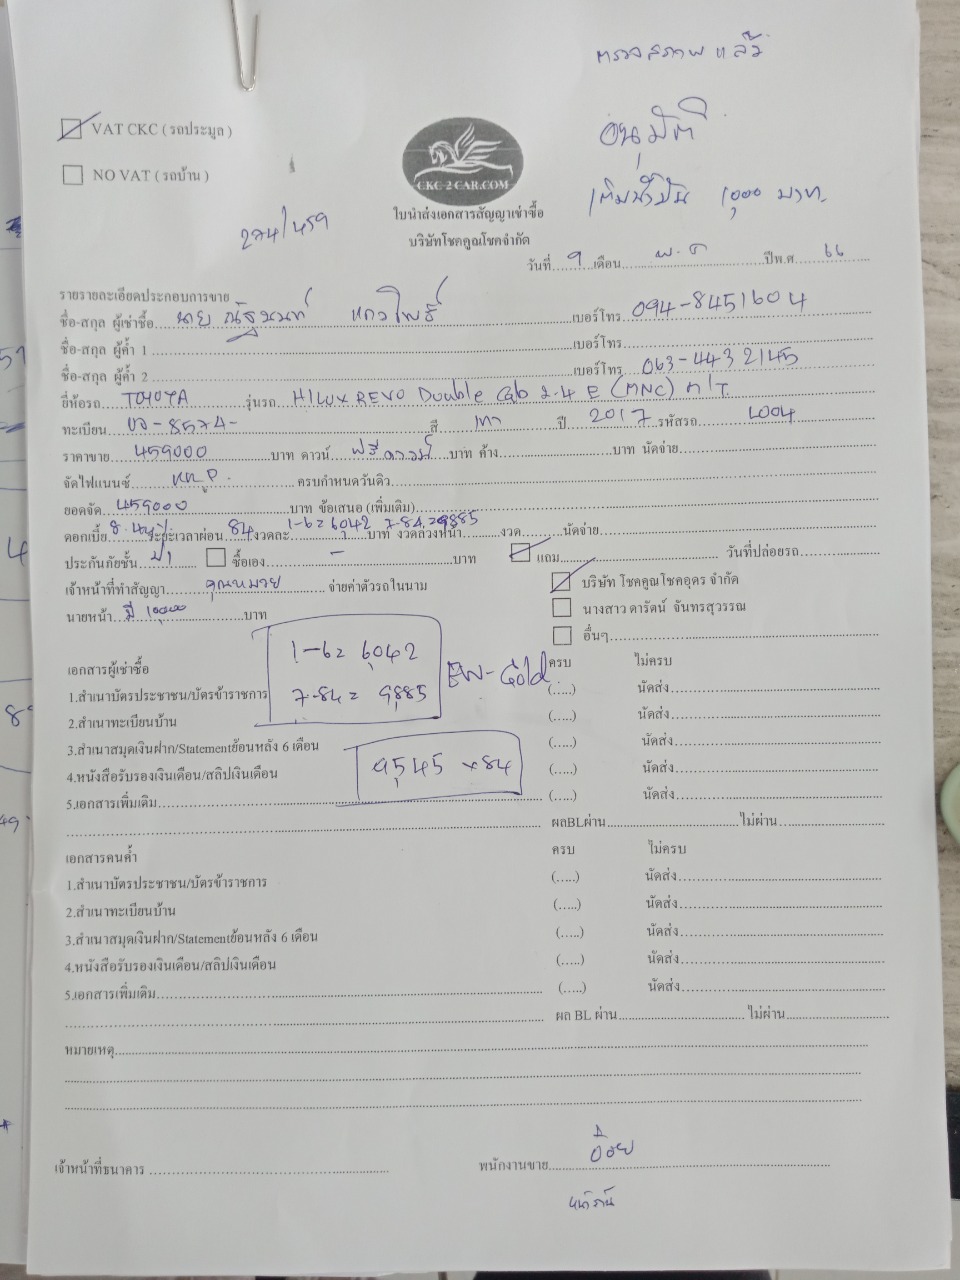 ตรวจสภาพแล้ว
VAT CKC ( รถประมูล )
อนุมัติ
NO VAT ( รถบ้าน )
CKC 2 CAR.COM
เติมน้ำมัน 1,000 บาท.
ใบนำส่งเอกสารสัญญาเช่าซื้อ
บริษัทโชคคูณโชคจำกัด
วันที่ 9 เดือน พ.ค ปีพ.ศ 66
รายรายละเอียดประกอบการขาย
ชื่อ-สกุล ผู้เช่าซื้อ นาย เบอร์โทร 094-8451604
ชื่อ-สกุล ผู้ค้ำ 1 เบอร์โทร
ชื่อ-สกุล ผู้ค้ำ 2 เบอร์โทร 063-443 2145
ยี่ห้อรถ TOYOTA รุ่นรถ HILUX REVO Double Cab 2.4 E (MNC) M/T
ทะเบียน 8574- สี เทา ปี 2017 รหัสรถ 4004
ราคาขาย 459000 บาท ดาวน์ ฟรีดาวน์ บาท ค้าง บาท นัดจ่าย
จัดไฟแนนซ์ ครบกำหนดวันดิว
ยอดจัด 459000 บาท ข้อเสนอ (เพิ่มเติม)
ดอกเบี้ย ระยะเวลาผ่อน 84 งวดละ 1-6= 6,042 7-84=9,885 บาท งวดล่วงหน้า งวด นัดจ่าย
ประกันภัยชั้น ป1 ซื้อเอง - บาท แถม วันที่ปล่อยรถ
เจ้าหน้าที่ทำสัญญา จ่ายค่าตัวรถในนาม บริษัท โชคคูณโชคอุดร จำกัด
นายหน้า มี 10,000 บาท นางสาว ดารัตน์ จันทรสุวรรณ
อื่นๆ
1-6= 6,042
7-84= 9,885
EW-Gold
เอกสารผู้เช่าซื้อ ครบ ไม่ครบ
1.สำเนาบัตรประชาชน/บัตรข้าราชการ (.....) นัดส่ง
2.สำเนาทะเบียนบ้าน (.....) นัดส่ง
3.สำเนาสมุดเงินฝาก/Statementย้อนหลัง 6 เดือน (.....) นัดส่ง
4.หนังสือรับรองเงินเดือน/สลิปเงินเดือน (.....) นัดส่ง
9,545 x84
5.เอกสารเพิ่มเติม (.....) นัดส่ง
ผลBLผ่าน ไม่ผ่าน
เอกสารคนค้ำ ครบ ไม่ครบ
1.สำเนาบัตรประชาชน/บัตรข้าราชการ (.....) นัดส่ง
2.สำเนาทะเบียนบ้าน (.....) นัดส่ง
3.สำเนาสมุดเงินฝาก/Statementย้อนหลัง 6 เดือน (.....) นัดส่ง
4.หนังสือรับรองเงินเดือน/สลิปเงินเดือน (.....) นัดส่ง
5.เอกสารเพิ่มเติม (.....) นัดส่ง
ผล BL ผ่าน ไม่ผ่าน
หมายเหตุ
เจ้าหน้าที่ธนาคาร พนักงานขาย